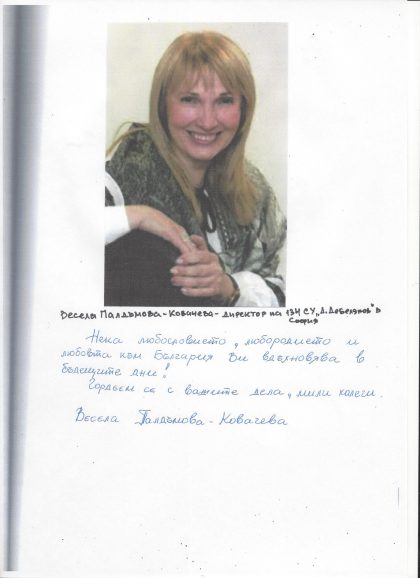 Весела Палдъмова-Ковачева - директор на 134 СУ „Д. Дебелянов" в
София
Нека любословието, любородието и
любовта към България Ви вдъхновява в
бъдещите дни!
Гордеем се с вашите дела, мили колеги.
Весела Палдъмова - Ковачева